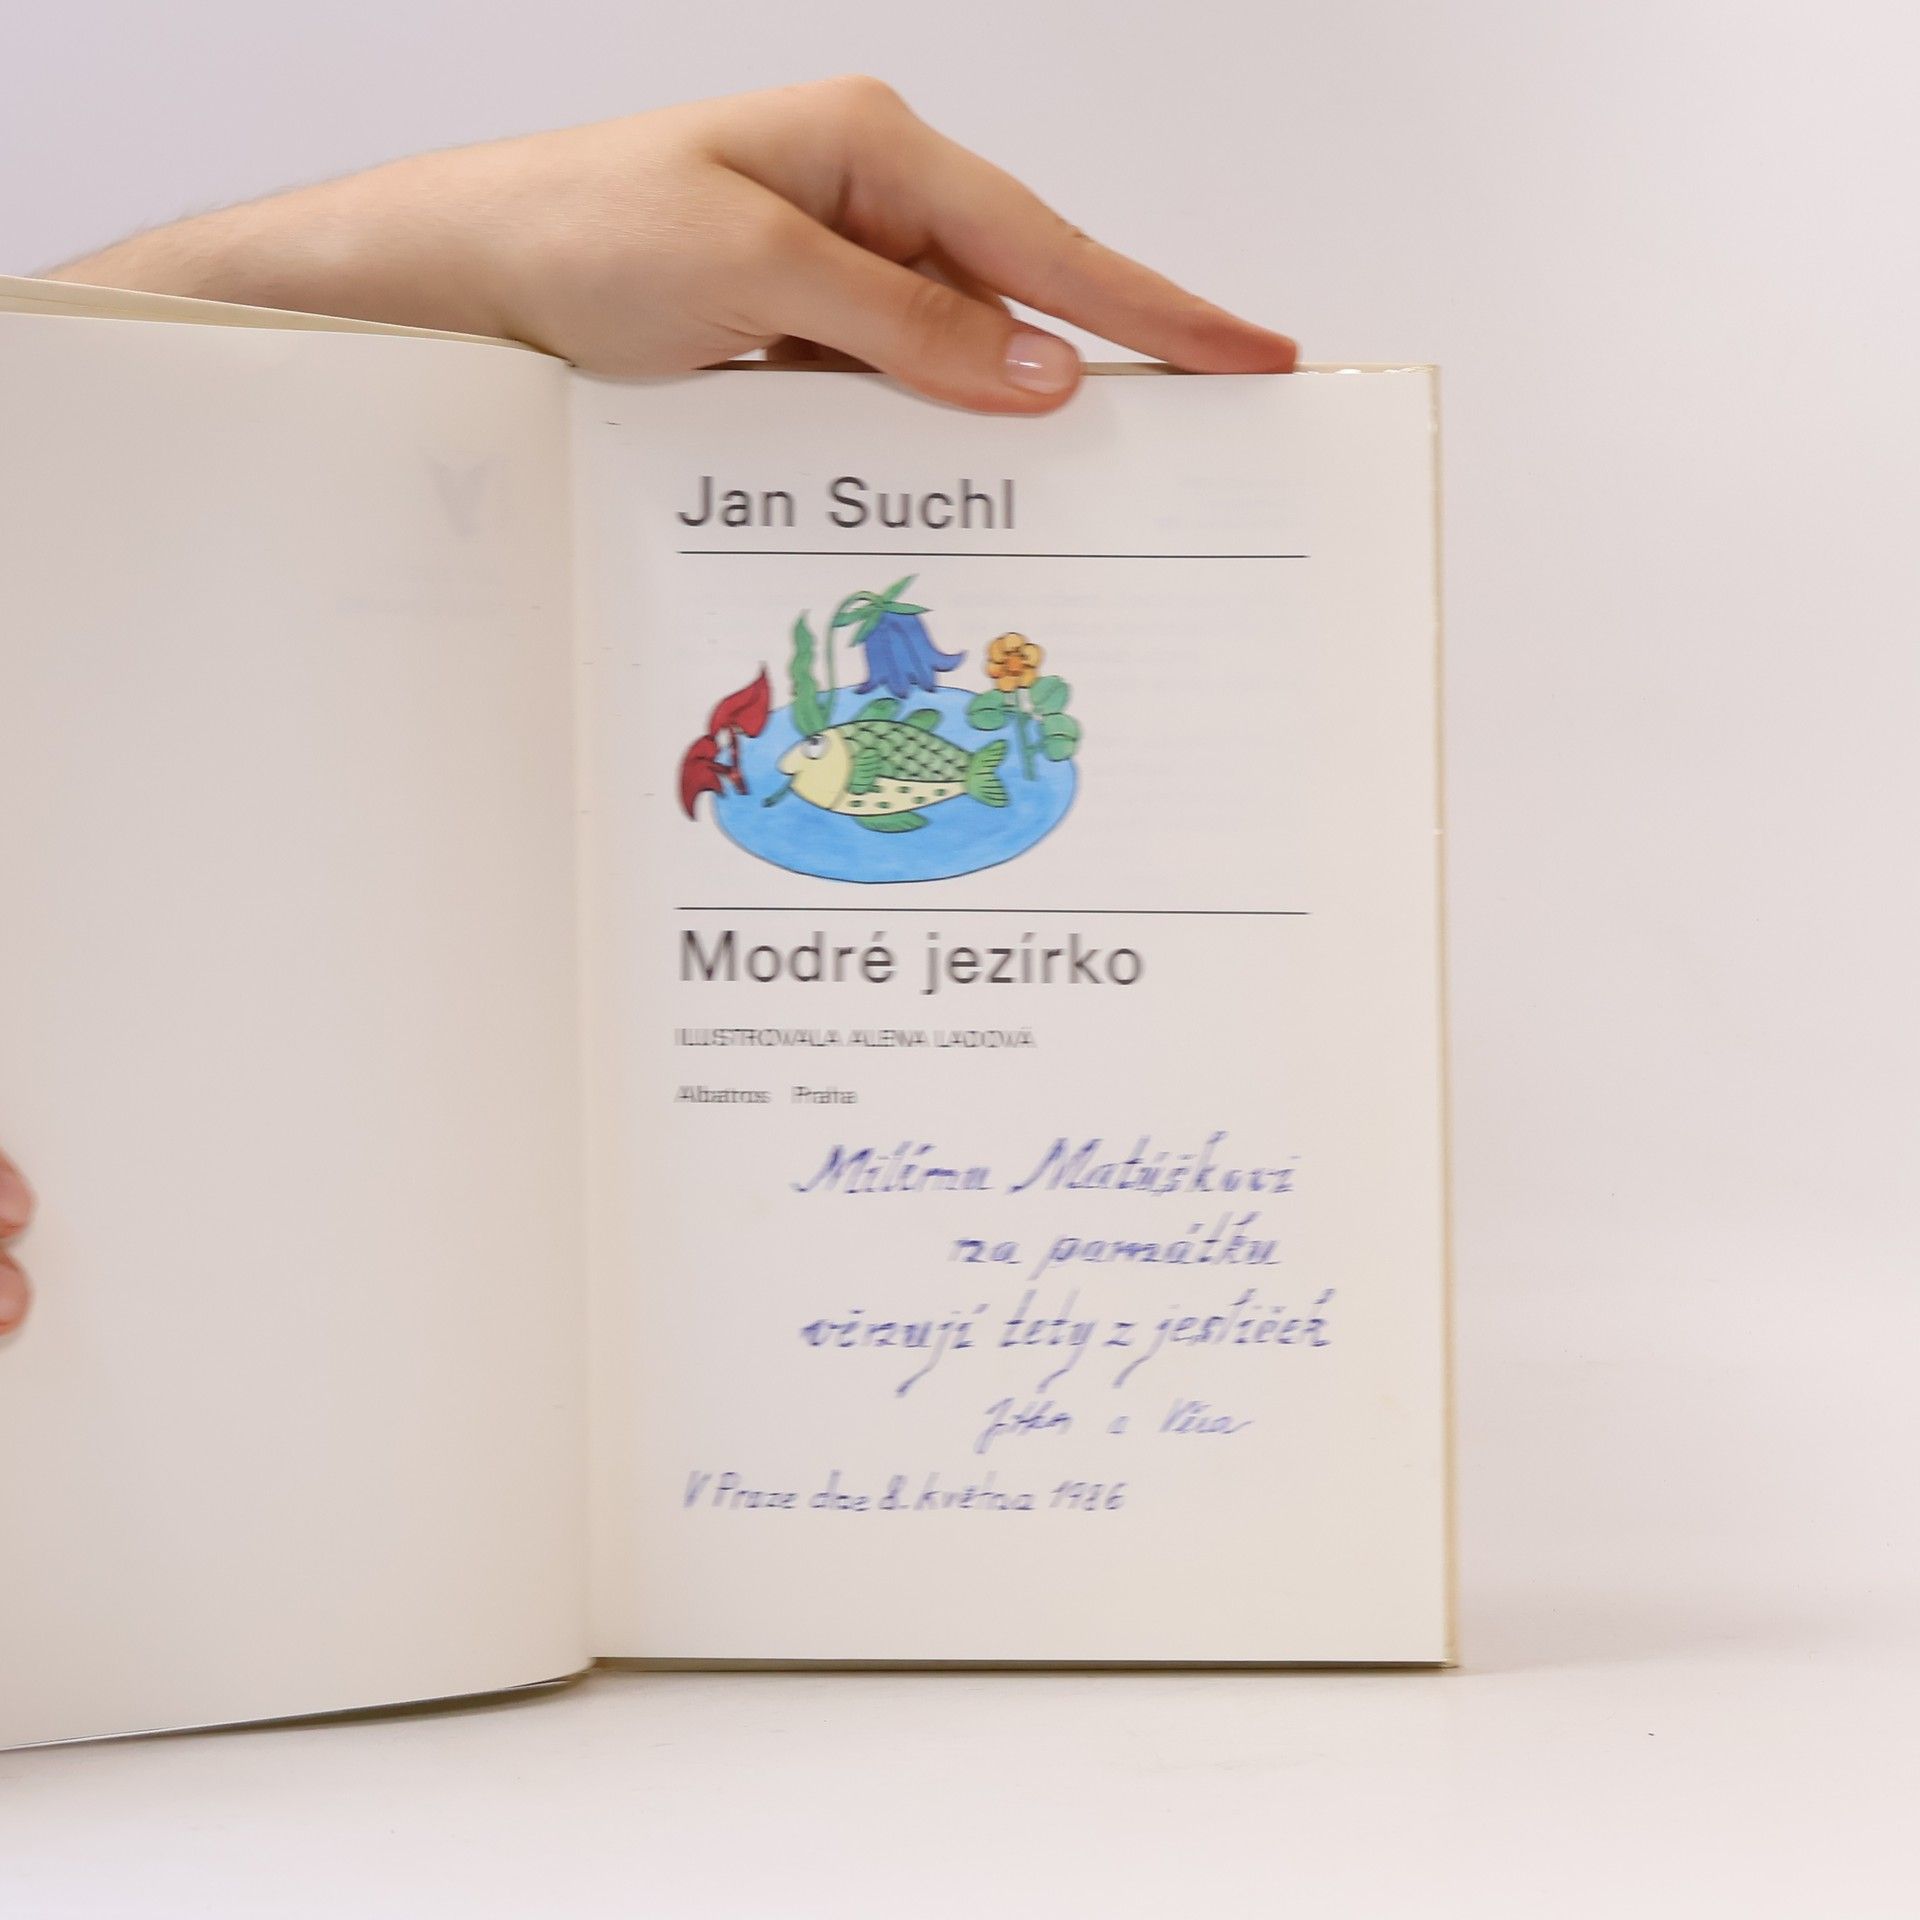 Jan Suchl
Modré jezírko
ILUSTROVALA ALENA LADOVÁ
Albatros Praha
Milému Matúškovi
na památku
věnují tety z jesliček
Jitka a Věra
V Praze dne 8. května 1986